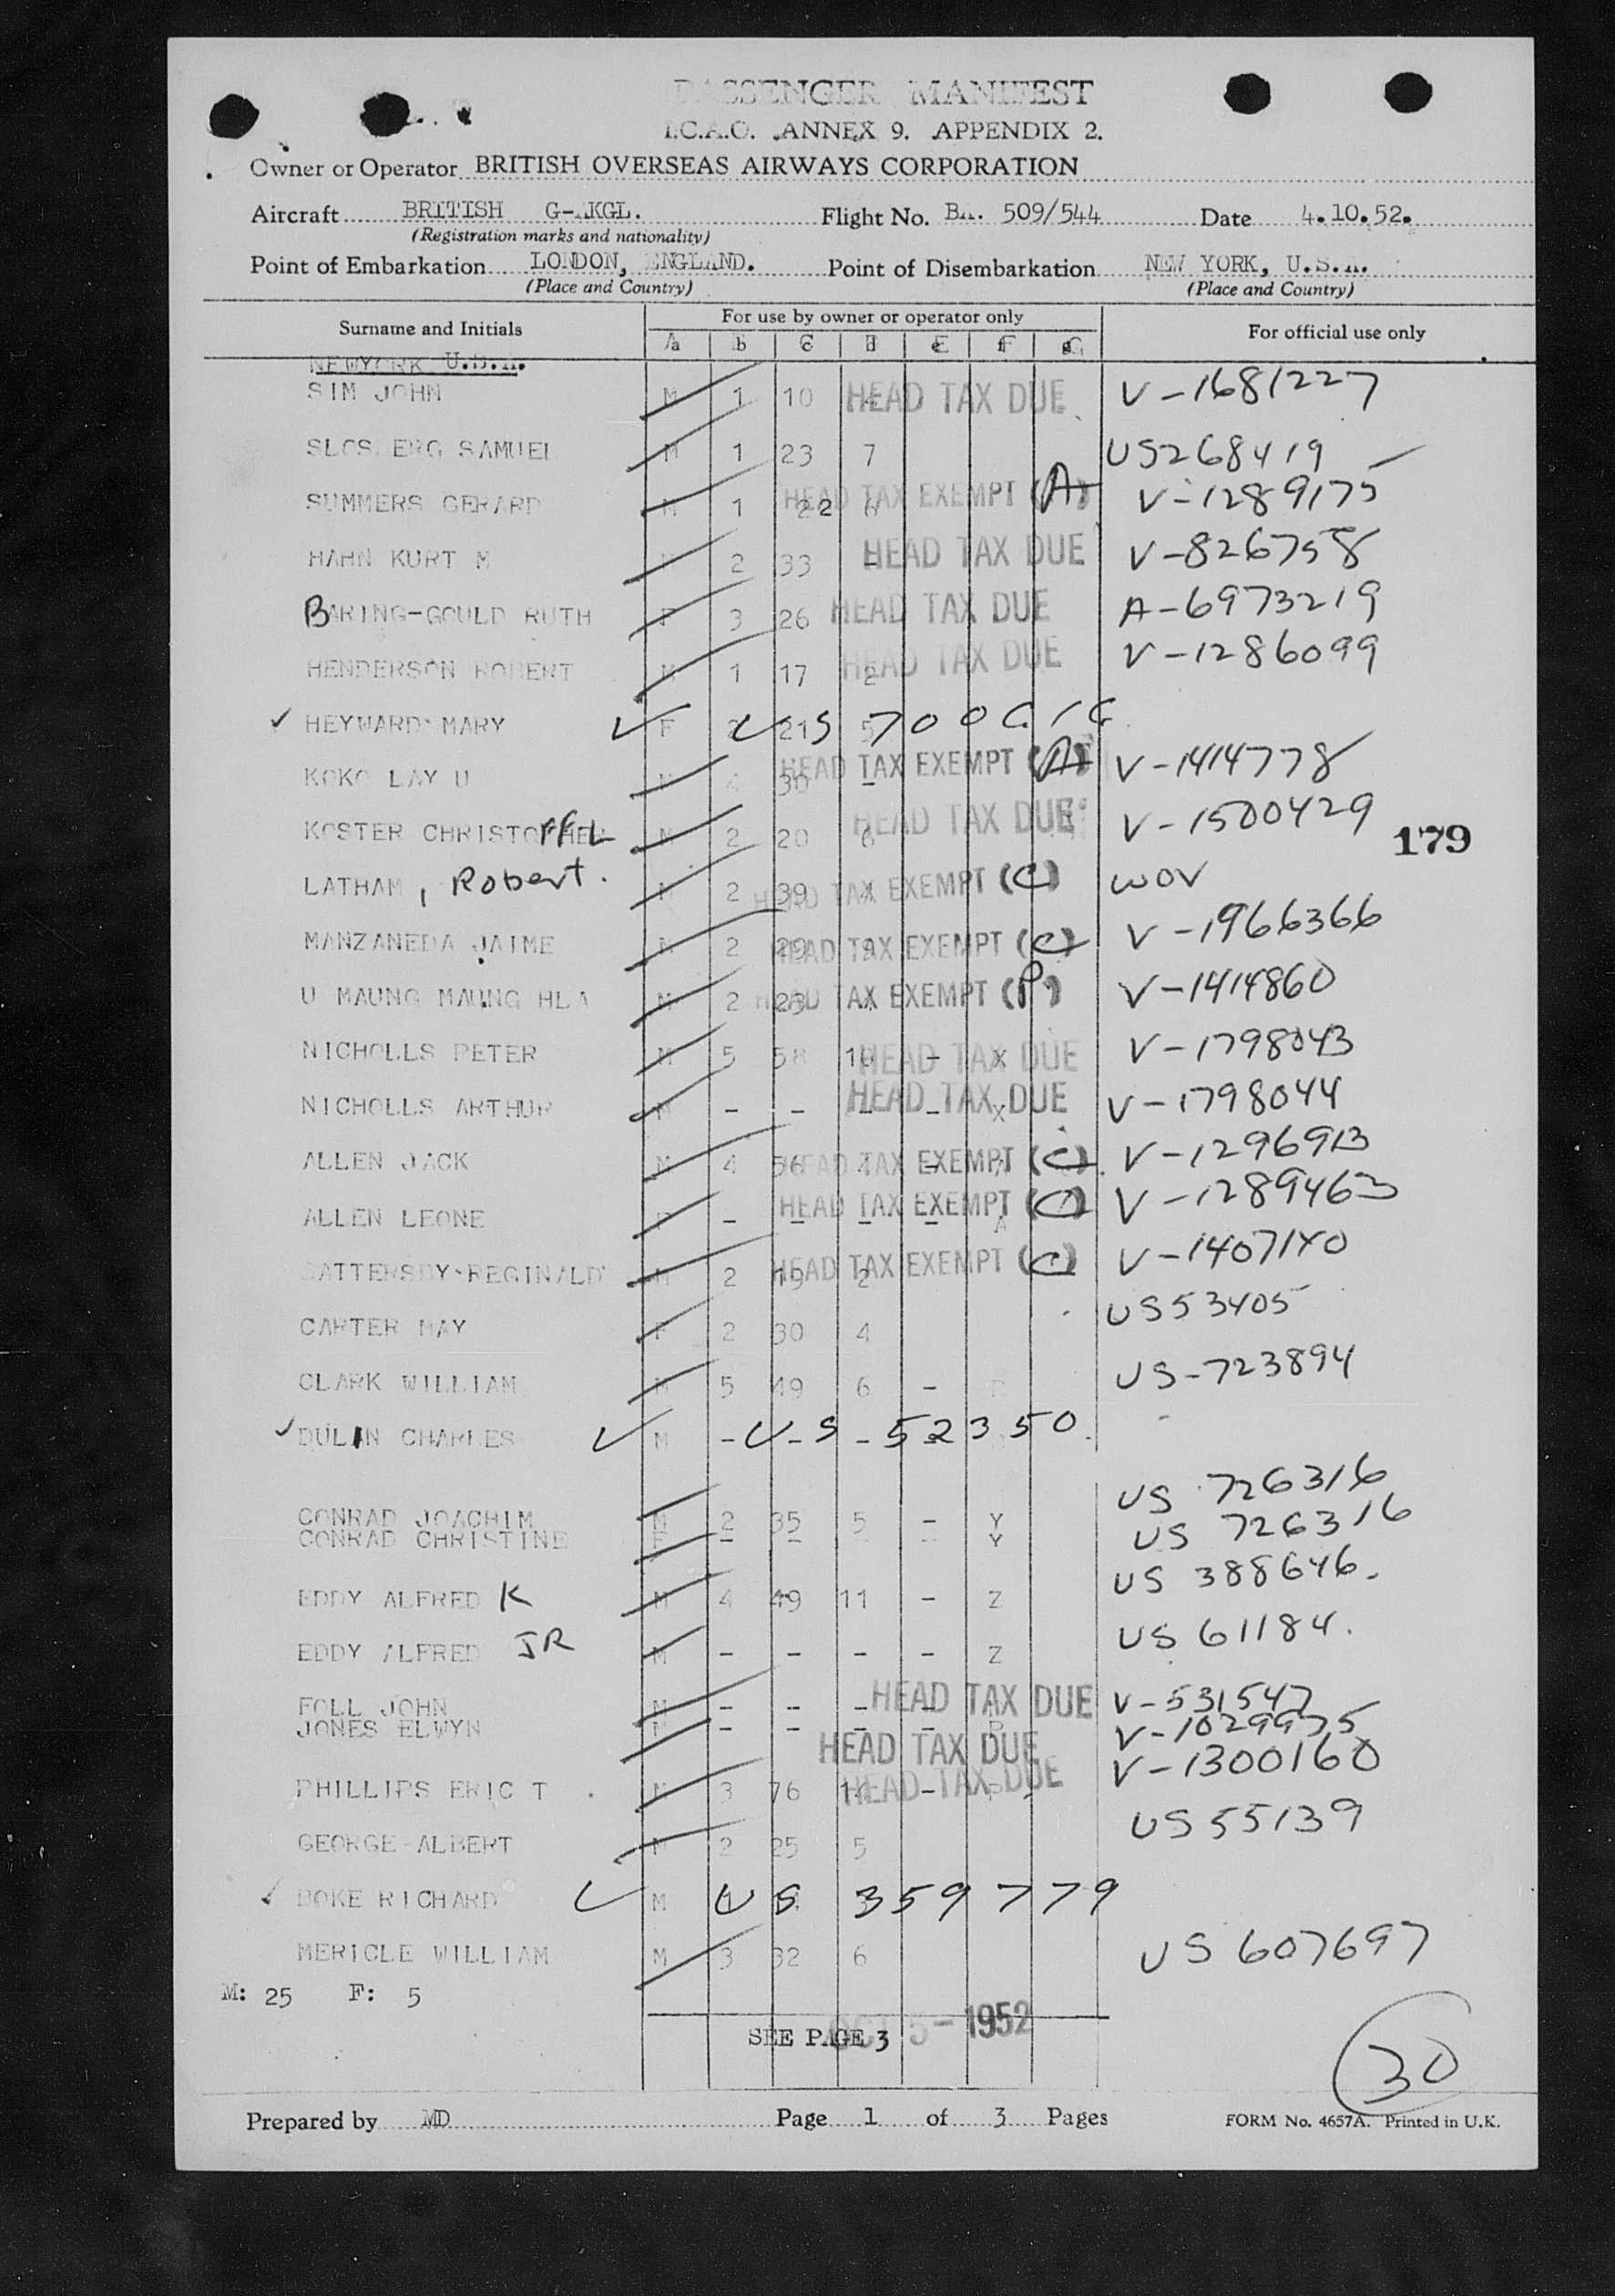 PASSENGER MANIFEST
I.C.A.O. ANNEX 9. APPENDIX 2.
Owner or Operator BRITISH OVERSEAS AIRWAYS CORPORATION
Aircraft BRITISH G-AKGL. Flight No. BA. 509/544 Date 4.10.52.
(Registration marks and nationality)
Point of Embarkation LONDON, ENGLAND. Point of Disembarkation NEW YORK, U.S.A.
(Place and Country) (Place and Country)
Surname and Initials For use by owner or operator only For official use only
A B C D E F G
NEWYORK U.S.A.
SIM JOHN M 1 10 HEAD TAX DUE V-1681227
SAMUEL M 1 23 7 US268419
SUMMERS GERARD M 1 22 6 HEAD TAX EXEMPT (A) V-1289175
HAHN KURT M 2 33 - HEAD TAX DUE V-826758
BARING-GOULD RUTH F 3 26 HEAD TAX DUE A-6973219
HENDERSON ROBERT M 1 17 2 HEAD TAX DUE V-1286099
✓ HEYWARD MARY ✓ F 2 21 5 US
KOKO LAY U M 4 30 - HEAD TAX EXEMPT (A) V-1414778
KOSTER CHRISTOFFEL M 2 20 6 HEAD TAX DUE V-1500429
179
LATHAM, Robert. M 2 39 4 HEAD TAX EXEMPT (C) WOV
MANZANEDA JAIME M 2 29 HEAD TAX EXEMPT (C) V-1966366
U MAUNG MAUNG HLA M 2 23 HEAD TAX EXEMPT (P) V-1414860
NICHOLLS PETER M 5 58 10 - X HEAD TAX DUE V-1798043
NICHOLLS ARTHUR M - - - - X HEAD TAX DUE V-1798044
ALLEN JACK M 4 56 4 - A HEAD TAX EXEMPT (C) V-1296913
ALLEN LEONE F - - - - A HEAD TAX EXEMPT (C) V-1289463
BATTERSBY REGINALD M 2 19 2 HEAD TAX EXEMPT (C) V-1407140
CARTER MAY F 2 30 4 US53405
CLARK WILLIAM M 5 49 6 - US-723894
✓ DULIN CHARLES ✓ M - - - - US 52350
CONRAD JOACHIM M 2 35 5 - Y US 726316
CONRAD CHRISTINE F - - - - Y US 726316
EDDY ALFRED K M 4 49 11 - Z US 388646.
EDDY ALFRED JR M - - - - Z US 61184.
FOLL JOHN M - - - - HEAD TAX DUE V-531547
JONES ELWYN M - - - - HEAD TAX DUE V-1029975
PHILLIPS ERIC T M 3 76 - HEAD TAX DUE V-1300160
GEORGE ALBERT M 2 25 5 US55139
✓ RICHARD ✓ M US 359779
MERICLE WILLIAM M 3 32 6 US 607697
M: 25 F: 5
OCT 5-1952
SEE PAGE 3
30
Prepared by MD Page 1 of 3 Pages FORM No. 4657A. Printed in U.K.